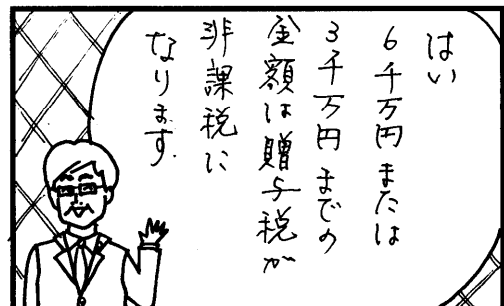 はい
6千万円または
3千万円までの
金額は贈与税が
非課税に
なります